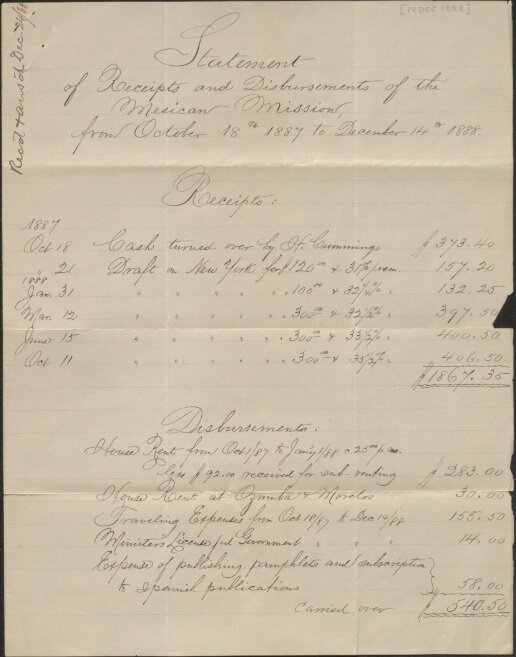 [14 DEC 1888]
Rec'd & ans'd Dec. 24/88
Statement
of Receipts and Disbursements of the
Mexican Mission,
from October 18th 1887 to December 14th 1888.
Receipts:
1887
Oct 18 Cash turned over by H. Cummings $ 373.40
" 21 Draft on New York for $120.00 & 31% prem. 157.20
1888
Jan. 31 " " " " " 100.00 & 32¼% " 132.25
Mar. 12 " " " " " 300.00 & 32½% " 397.50
June 15 " " " " " 300.00 & 33½% " 400.50
Oct 11 " " " " " 300.00 & 35½% " 406.50
$1867.35
Disbursements:
House Rent from Oct 1/87 to Jan'y 1/89 @ 25.00 p.m.
less $92.00 received for sub-renting $ 283.00
House Rent at Ozumba & Morelos 30.00
Traveling Expenses from Oct 18/87 to Dec 14/88 155.50
Ministers License Government " " 14.00
Expense of publishing pamphlets and subscription
to Spanish publications 58.00
Carried over $ 540.50